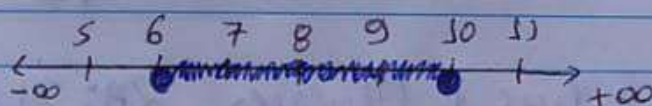 5 6 7 8 9 10 11
-∞ +∞